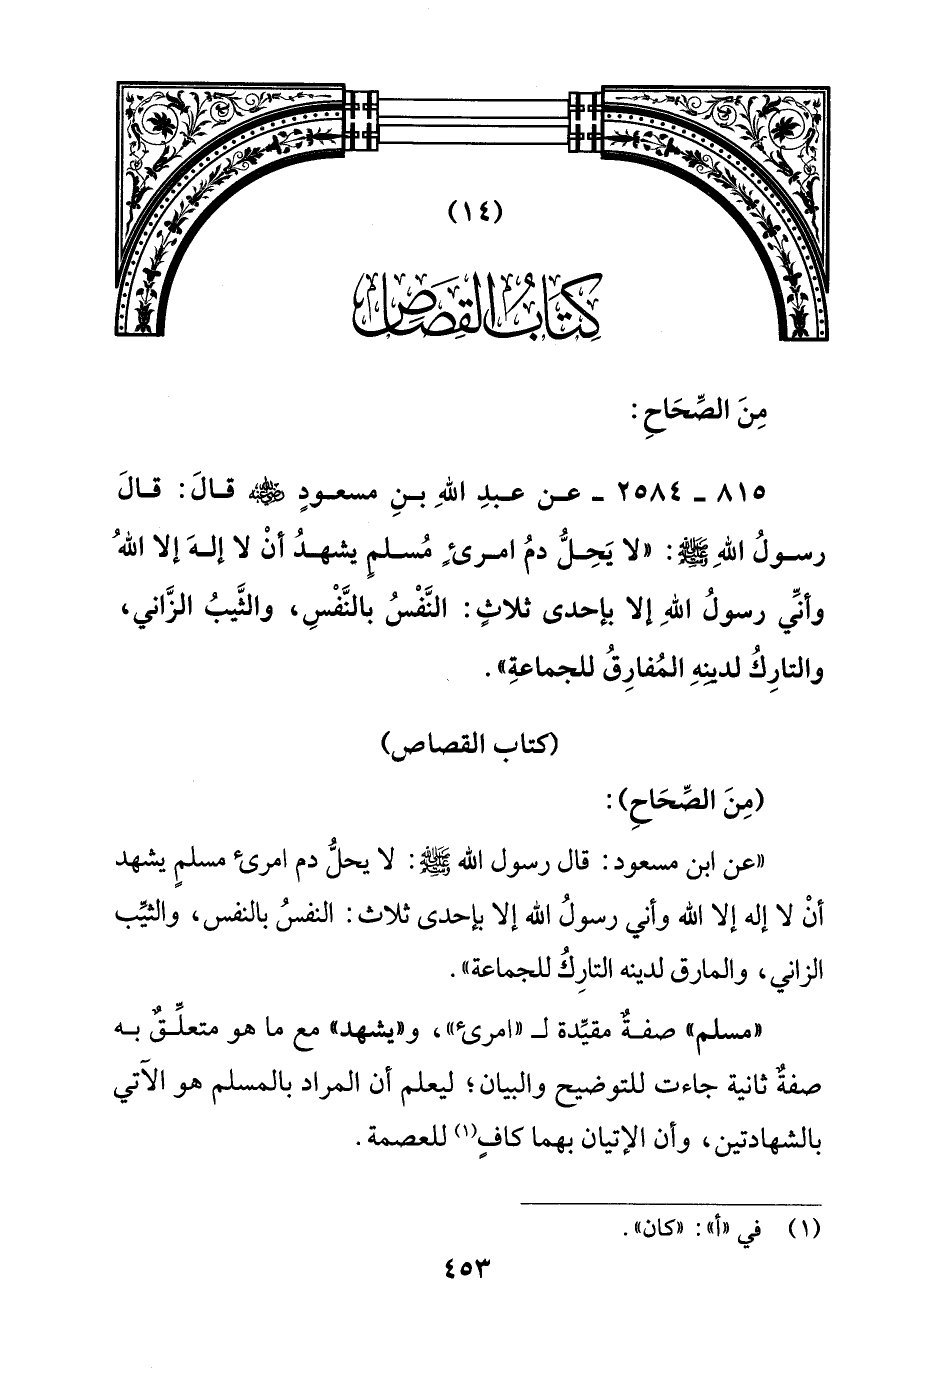 (١٤)
كِتَابُ القِصَاصِ
مِنَ الصِّحَاحِ:
٨١٥ ـ ٢٥٨٤ ـ عـن عبـدِ اللهِ بـنِ مسعـودٍ ﵁ قـالَ: قـالَ
رسـولُ اللهِ ﷺ: «لا يَحِـلُّ دمُ امـرئٍ مُسـلمٍ يشهـدُ أنْ لا إلـهَ إلا اللهُ
وأنِّي رسولُ اللهِ إلا بإحدى ثلاثٍ: النَّفْسُ بالنَّفْسِ، والثَّيبُ الزَّاني،
والتارِكُ لدينِهِ المُفارِقُ للجماعةِ».
(كتاب القصاص)
(مِنَ الصِّحَاحِ):
«عن ابن مسعود: قال رسول الله ﷺ: لا يحلُّ دم امرئ مسلمٍ يشهد
أنْ لا إله إلا الله وأني رسولُ الله إلا بإحدى ثلاث: النفسُ بالنفس، والثيِّب
الزاني، والمارق لدينه التارِكُ للجماعة».
«مسلم» صفـةٌ مقيِّدة لـ «امرئ»، و«يشهد» مع ما هو متعلِّـقٌ بـه
صفةٌ ثانية جاءت للتوضيح والبيان؛ ليعلم أن المراد بالمسلم هو الآتي
بالشهادتين، وأن الإتيان بهما كافٍ(١) للعصمة.
(١) في «أ»: «كان».
٤٥٣